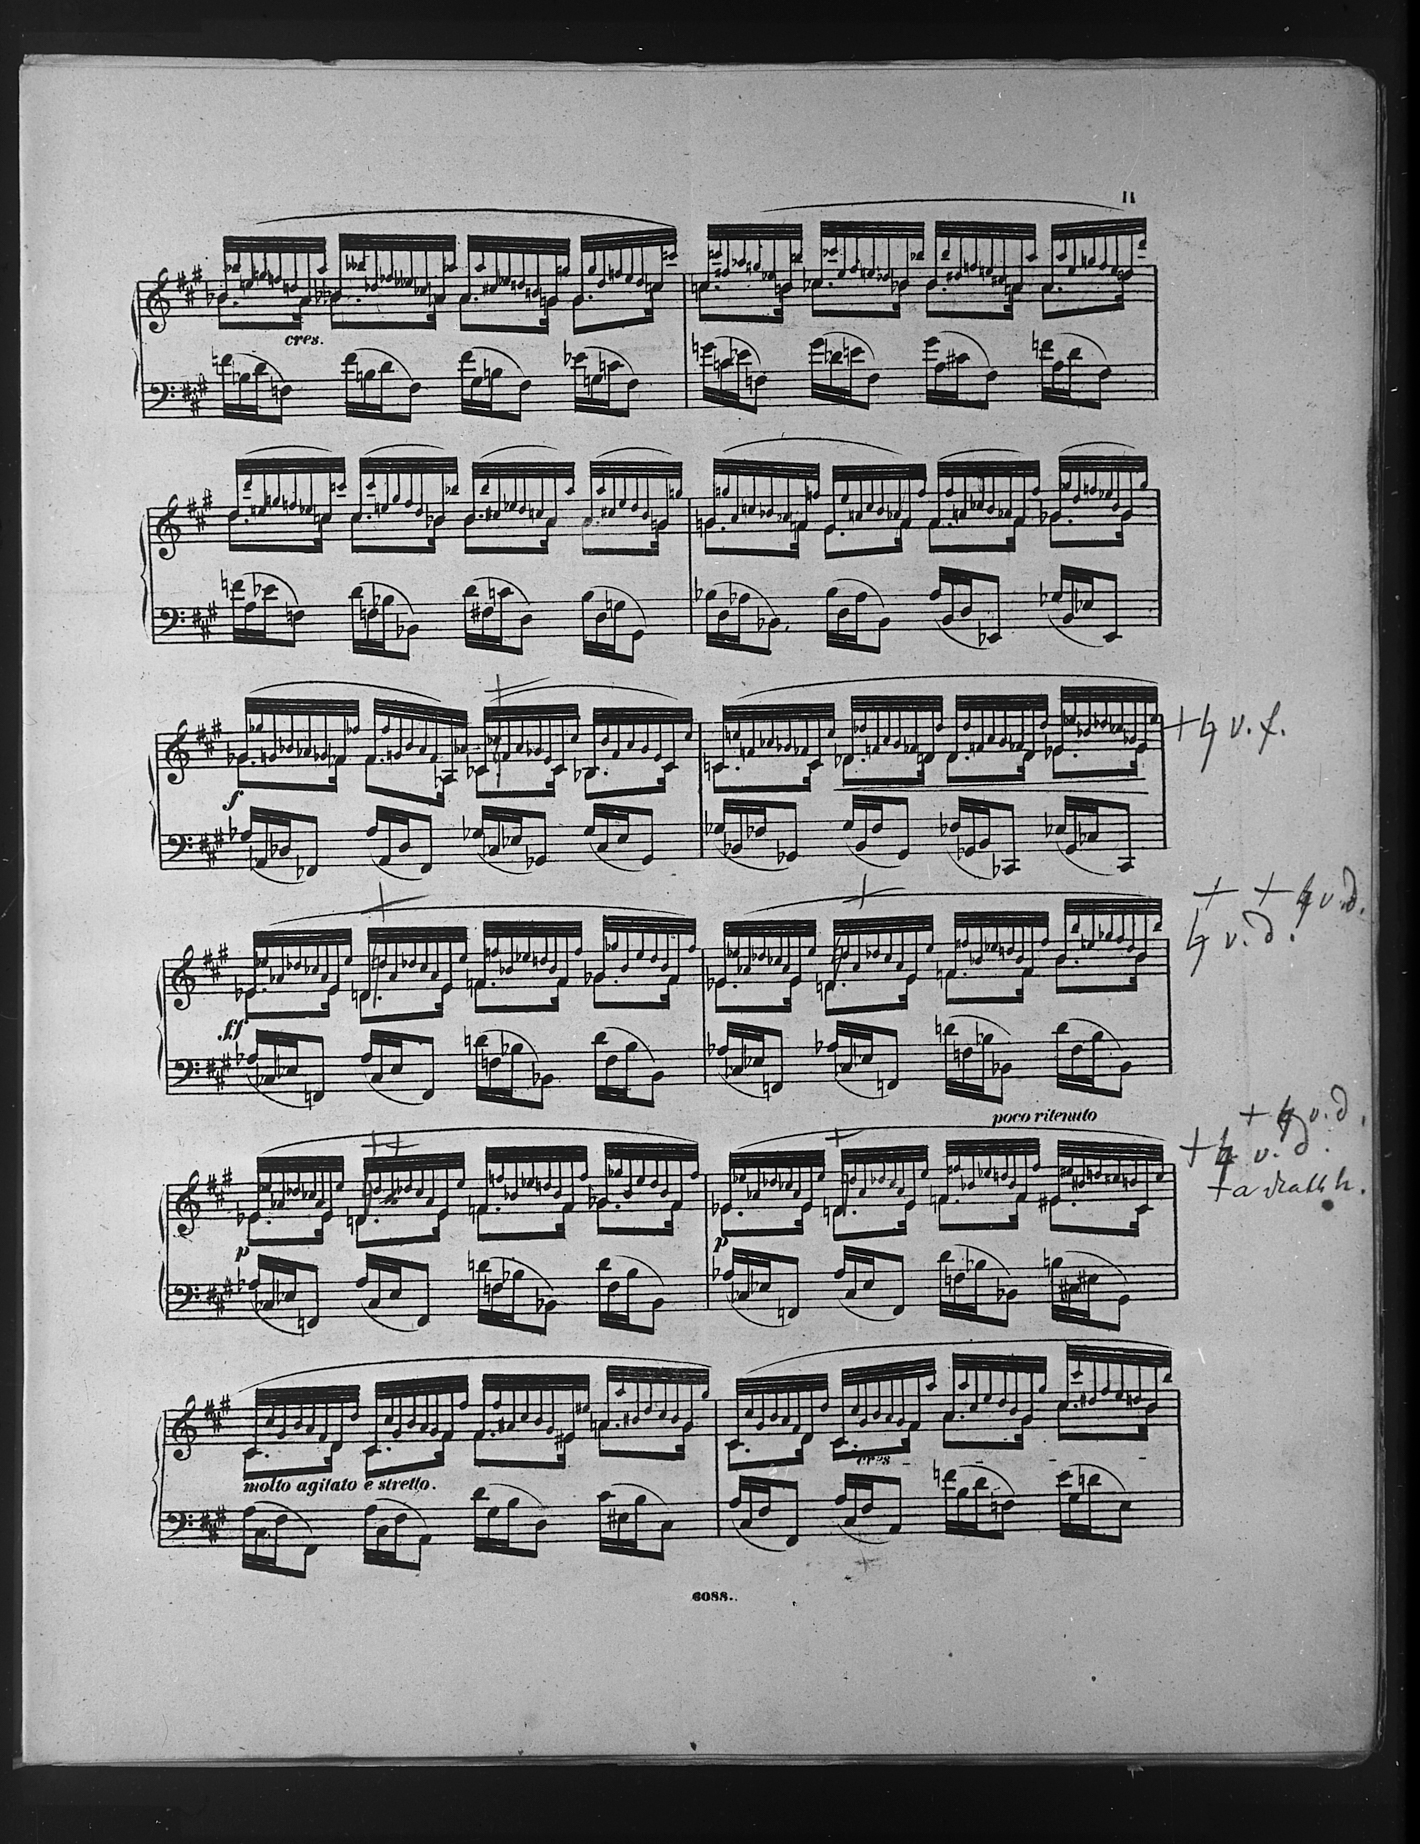 11
cres.
f
+ ♮ v. f.
+ + ♮ v. d.
♮ v. d.
ff
poco ritenuto
+ ♮ v. d.
+ ♮ v. d.
p
p
molto agitato e stretto.
cres - - - - -
6088.